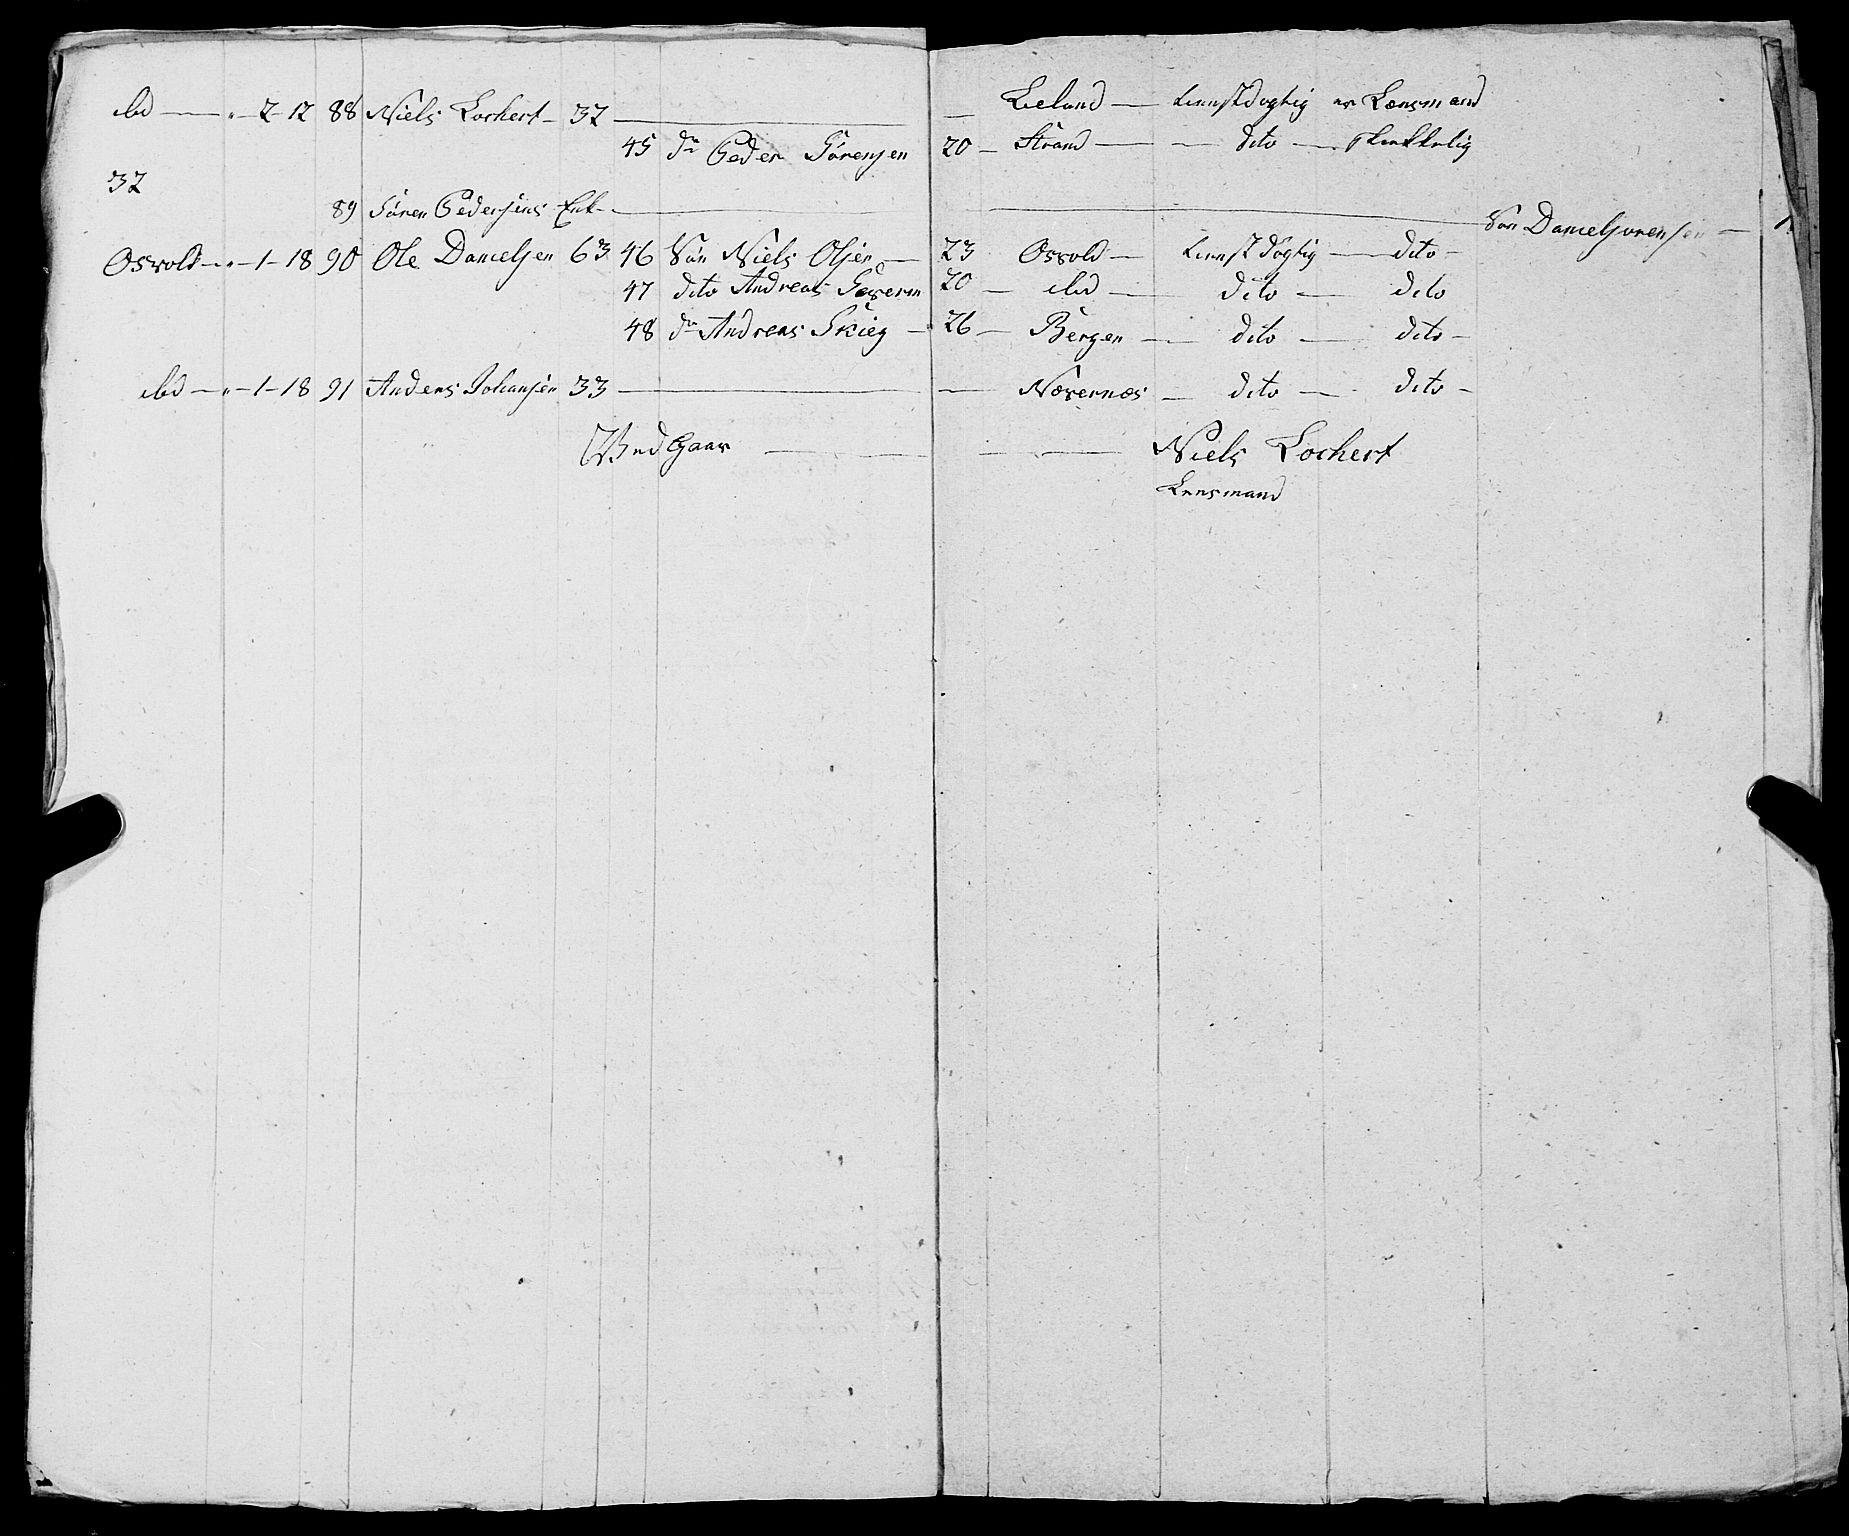 ibd — " — 2 — 12 88 Niels Lochert — 32 — — Leland — tienestdygtig er Lensmand
45 do Peder Sörensen 20 — Strand — dito — skikkelig
32
89 Sören Pedersens Enk — Sön Daniel Sörensen — 1
Osvold — " — 1 — 18 90 Ole Danielsen 63 46 Sön Niels Olsen — 23 Osvold — tienestdygtig — dito —
47 dito Andreas 20 — ibd — dito — dito
48 do Andreas — 26 — Bergen — dito — dito —
ibd — " — 1 — 18 91 Anders Johansen 33 — — Nævernæs — dito — dito —
Vedgaar — Niels Lochert
Lensmand